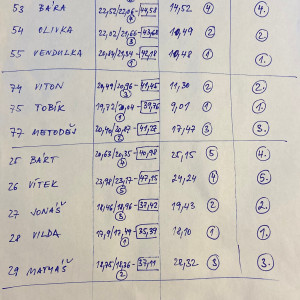 53 BÁRA 22,52/22,06- 44,58 14,52 ④ 4.
④
54 OLIVKA 22,02/21,66- 43,68 10,49 ② 2.
③
55 VENDULKA 20,84/21,34- 42,18 10,48 ① 1.
①
74 VITON 20,49/20,96- 41,45 11,30 ② 2.
③
75 TOBÍK 19,72/20,04- 39,76 9,01 ① 1.
①
77 METODĚJ 17,47 ③ 3.
②
25 BÁRT 20,63/20,35- 40,98 25,15 ⑤ 4.
④
26 VÍTEK 23,98/23,17- 47,15 24,24 ④ 5.
⑤
27 JONÁŠ 18,46/18,96- 37,42 19,43 ② 2.
③
28 VILDA 17,9/17,49- 35,39 18,10 ① 1.
①
29 MATYÁŠ 18,75/18,36- 37,11 28,32 ③ 3.
②